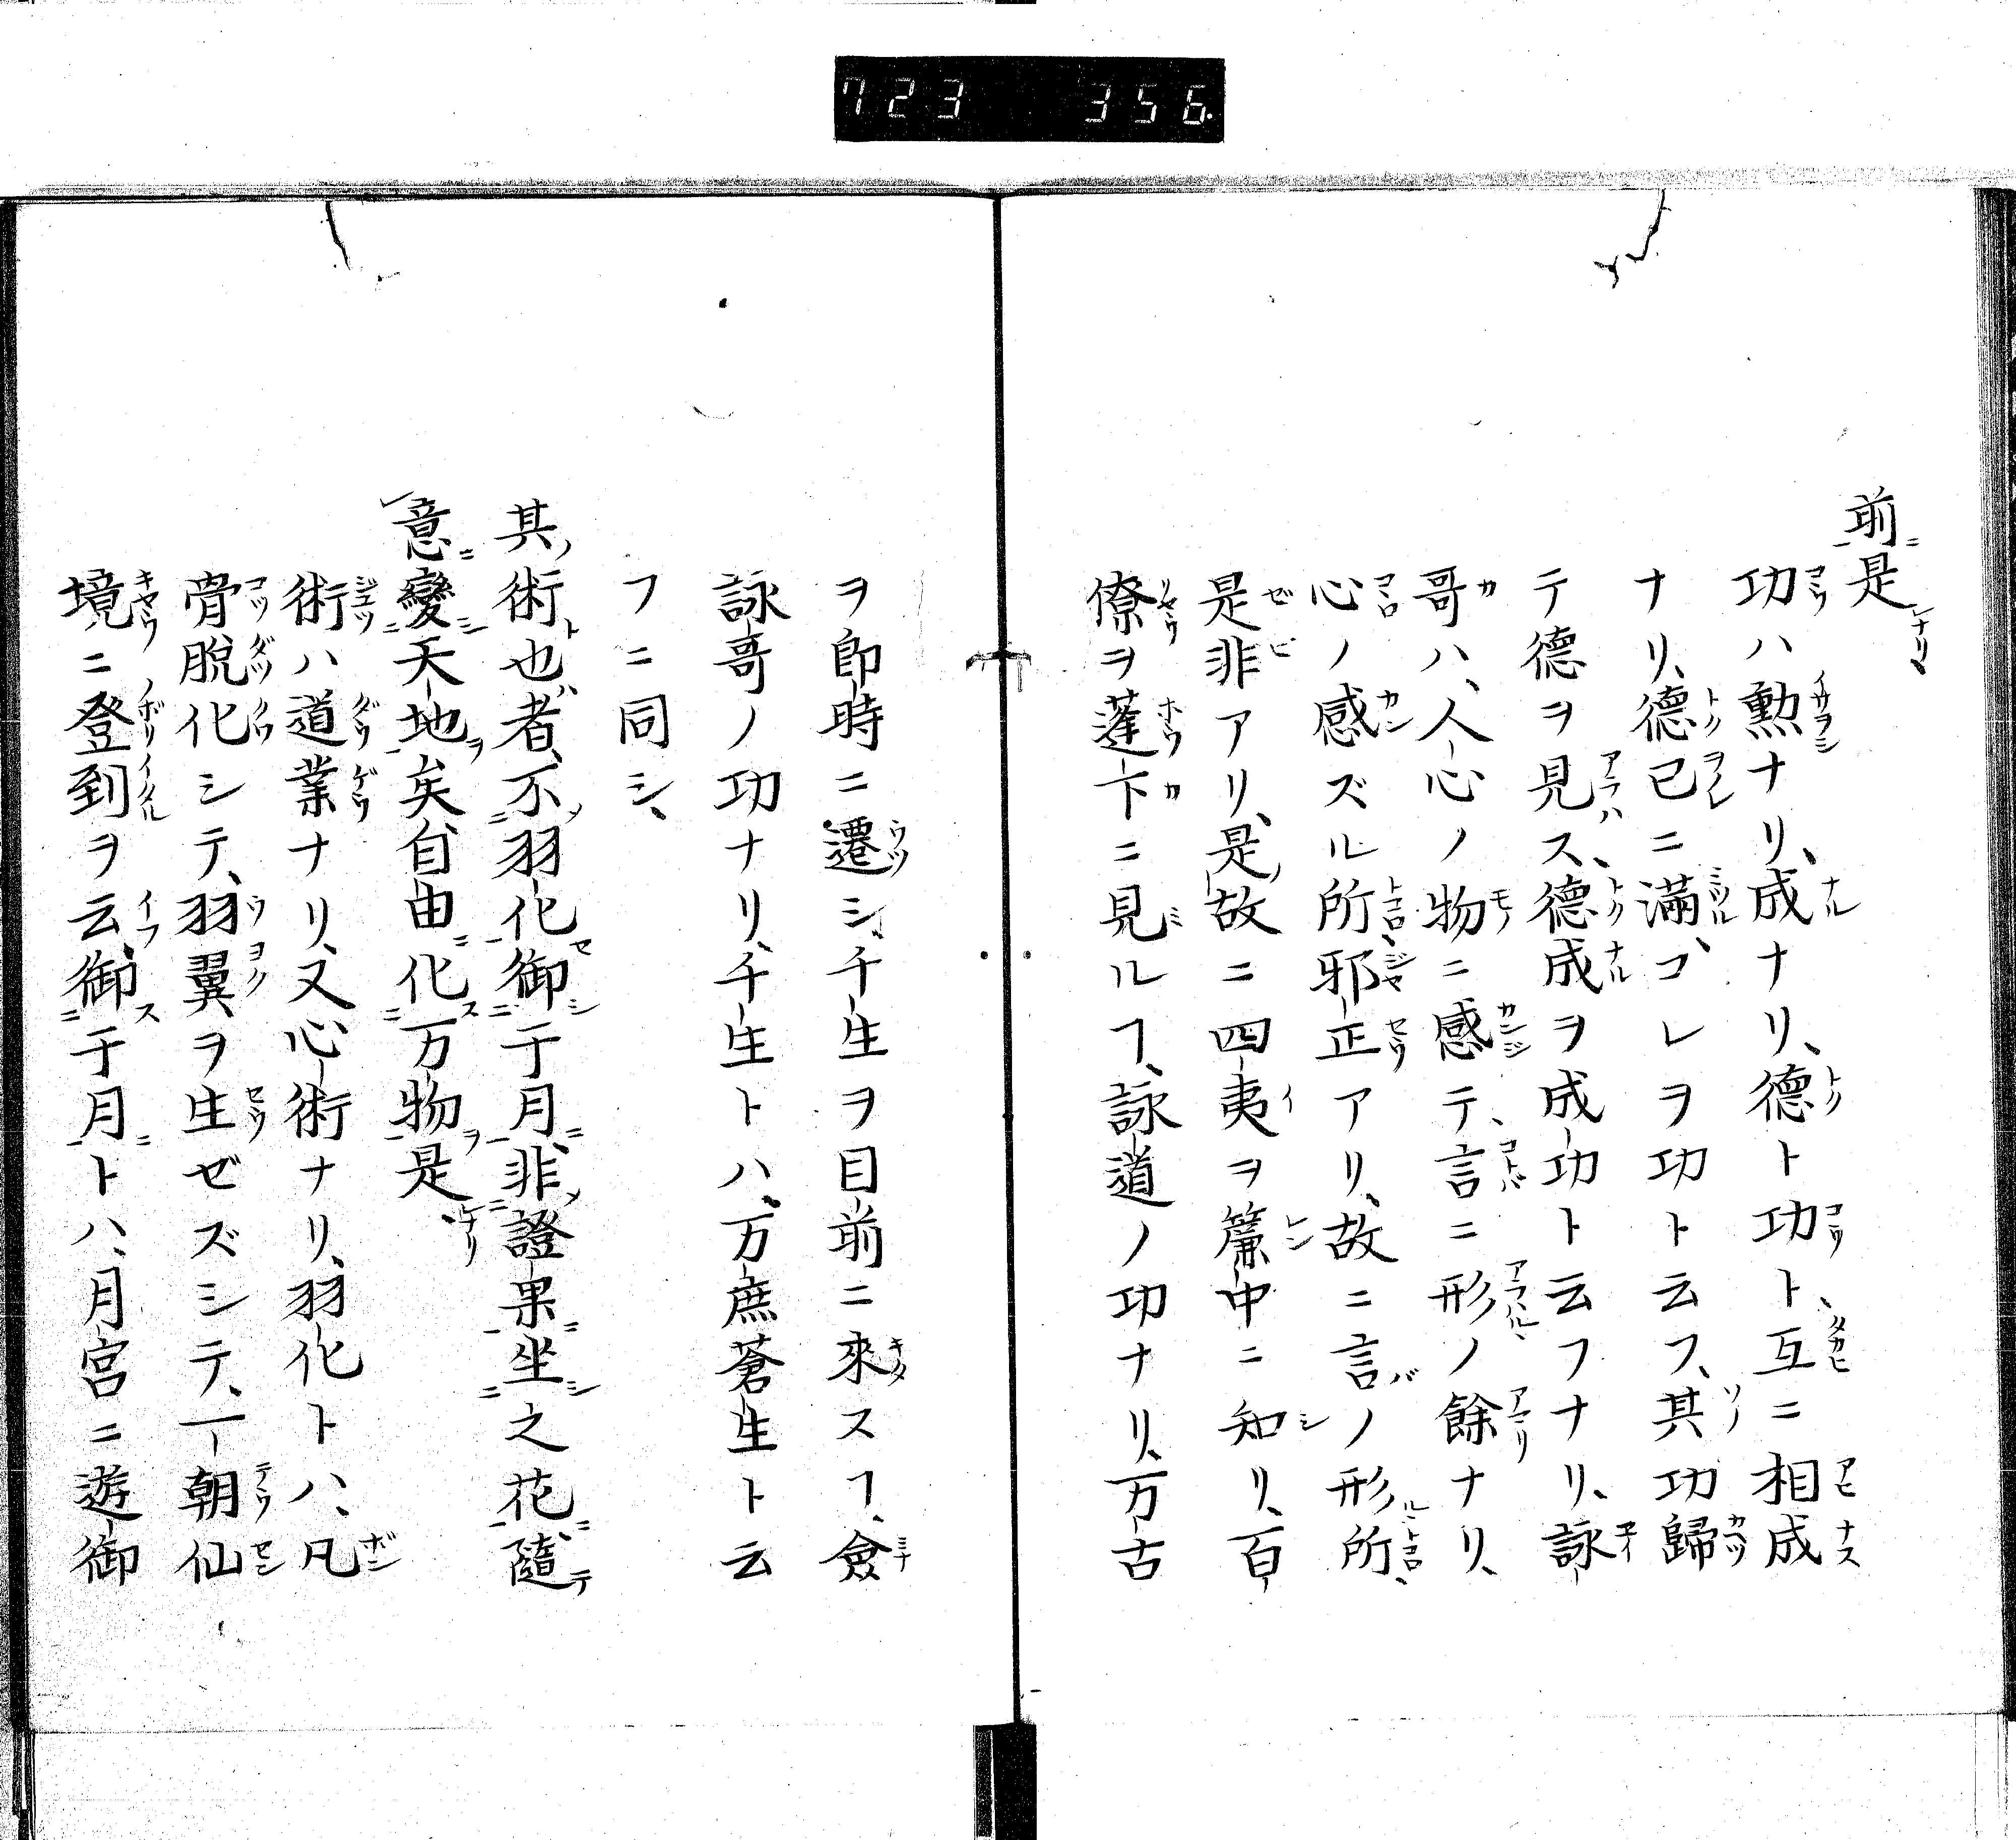 723 356
前是
功ハ勲ナリ、成ナリ、德ト功ト、互ニ相成
ナリ、德已ニ滿、コレヲ功ト云フ、其功歸
テ德ヲ見ス、德成ヲ成功ト云フナリ、詠
哥ハ、人心ノ物ニ感テ、言ニ形ノ餘ナリ、
心ノ感ズル所、邪正アリ、故ニ言ノ形所、
是非アリ、是故ニ四夷ヲ簾中ニ知リ、百
僚ヲ蓬下ニ見ルヿ、詠道ノ功ナリ、万古
ヲ即時ニ遷シ、千生ヲ目前ニ來スヿ、僉
詠哥ノ功ナリ、千生トハ、万庶蒼生ト云
フニ同シ、
其術也者、不羽化御于月、非證果坐之花、隨
意變天地矣自由化万物是、
術ハ道業ナリ、又心術ナリ、羽化トハ、凡
骨脫化シテ、羽翼ヲ生ゼズシテ、一朝仙
境ニ登到ヲ云、御于月トハ、月宮ニ遊御